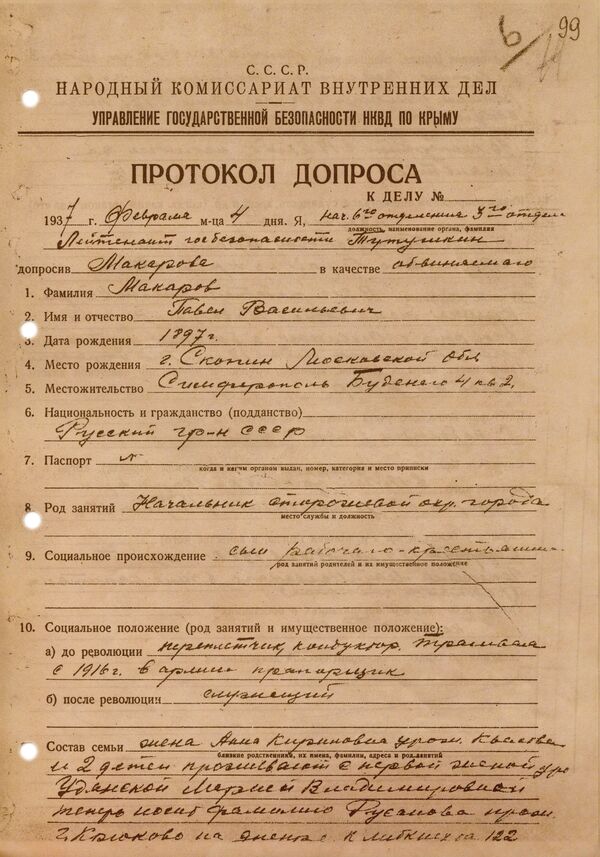 6/ 99
С. С. С. Р.
НАРОДНЫЙ КОМИССАРИАТ ВНУТРЕННИХ ДЕЛ
УПРАВЛЕНИЕ ГОСУДАРСТВЕННОЙ БЕЗОПАСНОСТИ НКВД ПО КРЫМУ
ПРОТОКОЛ ДОПРОСА
К ДЕЛУ №
1937 г. Февраля м-ца 4 дня. Я, нач. 6го отделения 3го отдел
должность, наименование органа, фамилия
Лейтенант госбезопасности Тутушкин
допросив Макарова в качестве обвиняемого
1. Фамилия Макаров
2. Имя и отчество Павел Васильевич
3. Дата рождения 1897 г.
4. Место рождения г. Скопин Московской Обл
5. Местожительство Симферополь Буденого 4 кв 2.
6. Национальность и гражданство (подданство)
Русский гр-н СССР
7. Паспорт
когда и кегим органом выдан, номер, категория и место приписки
8. Род занятий Начальник сторожевой охр. города
место службы и должность
9. Социальное происхождение сын рабочего-крестьянин
род занятий родителей и их имущественное положение
10. Социальное положение (род занятий и имущественное положение):
а) до революции переплетчик, кондуктор трамвая
с 1916 г. в армии прапорщик
б) после революции служащий
Состав семьи жена Анна Кирилловна урож.
близкие родственники, их имена, фамилии, адреса и род занятий
и 2 детей проживают с первой женой
Удянской Марией Владимировной
теперь носит фамилию Русанова прож.
г. Крюково на К Либкнехта 122